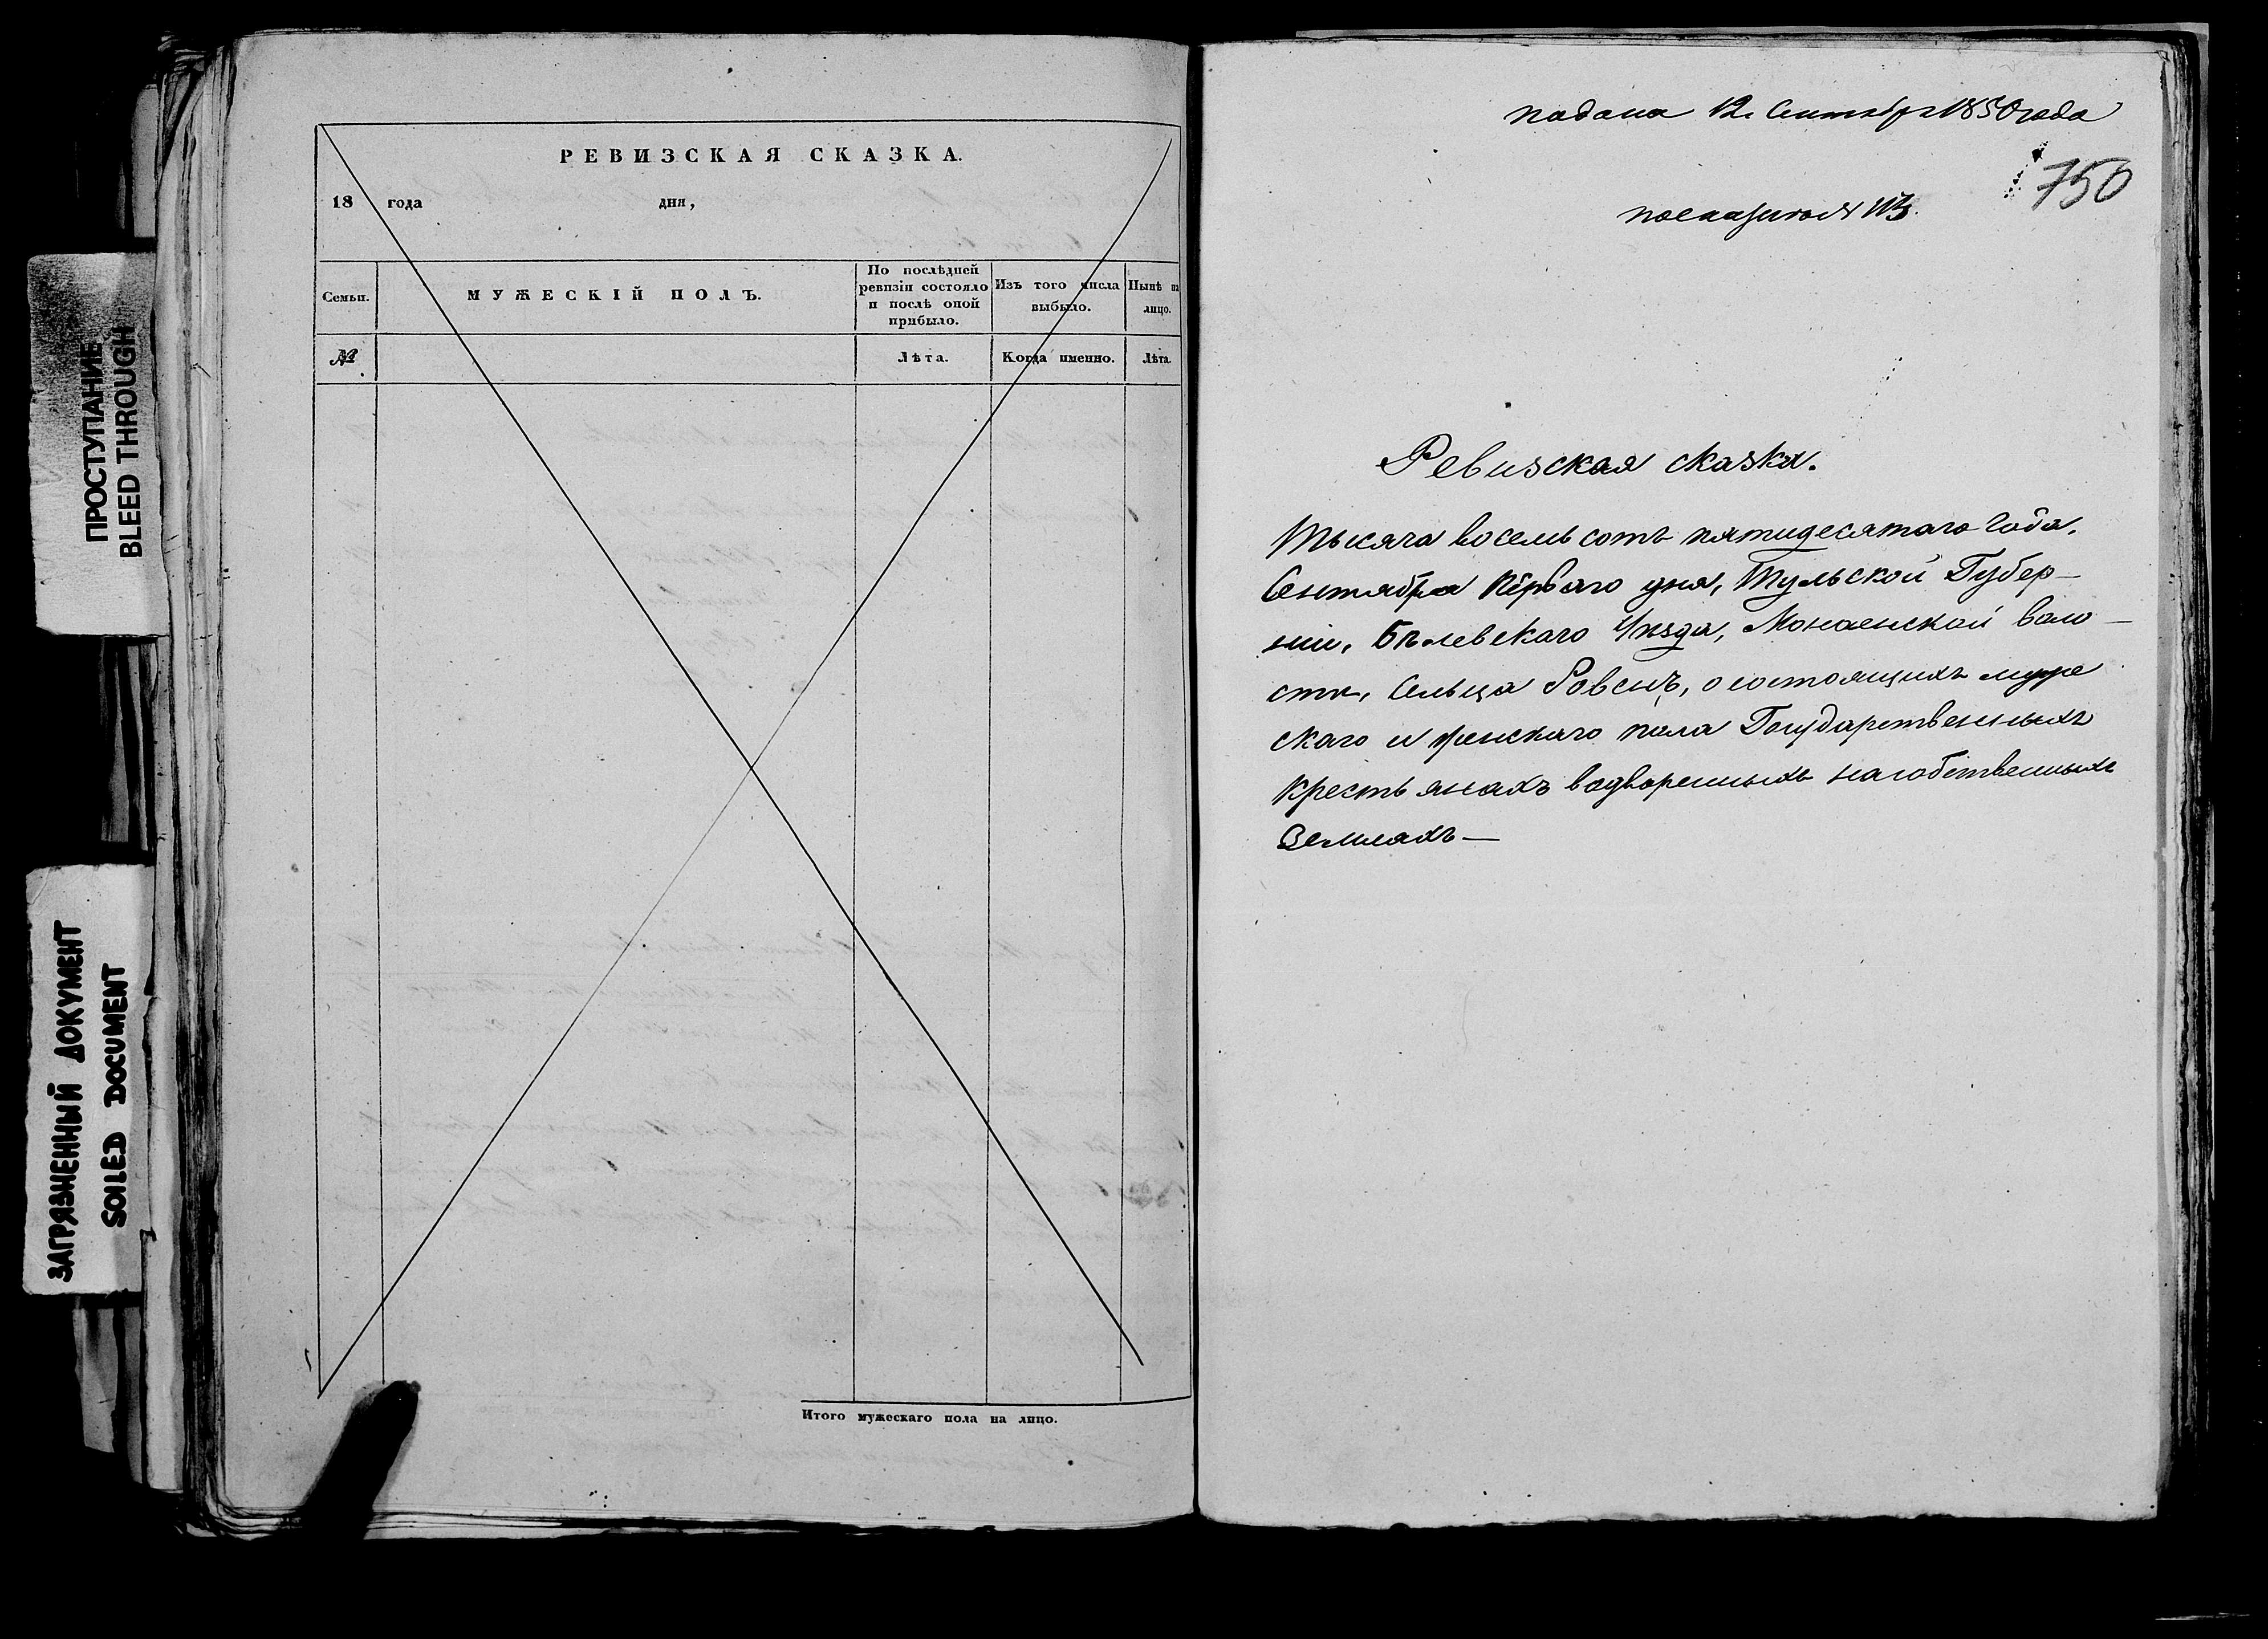 ПРОСТУПАНИЕ
BLEED THROUGH
ЗАГРЯЗНЕННЫЙ ДОКУМЕНТ
SOILED DOCUMENT
РЕВИЗСКАЯ СКАЗКА.
18 года дня,
Семьи.
МУЖЕСКІЙ ПОЛЪ.
По послѣдней
ревизіи состояло
и послѣ оной
прибыло.
Изъ того числа
выбыло.
Нынѣ на
лицо.
№
Лѣта.
Когда именно.
Лѣта
Итого мужескаго пола на лицо.
подана 12. Сентября 1850 года
750
Ревизская сказка.
Тысяча восемь сотъ пятидесятаго Года.
Сентября Перваго дня, Тульской Губер—
ніи, Бѣлевскаго Уѣзда, Монаенской воло—
сти, Сельца Ровенъ, о состоящихъ муже
скаго и женскаго пола Государственныхъ
крестьянахъ водворенныхъ на собственныхъ
Земляхъ—